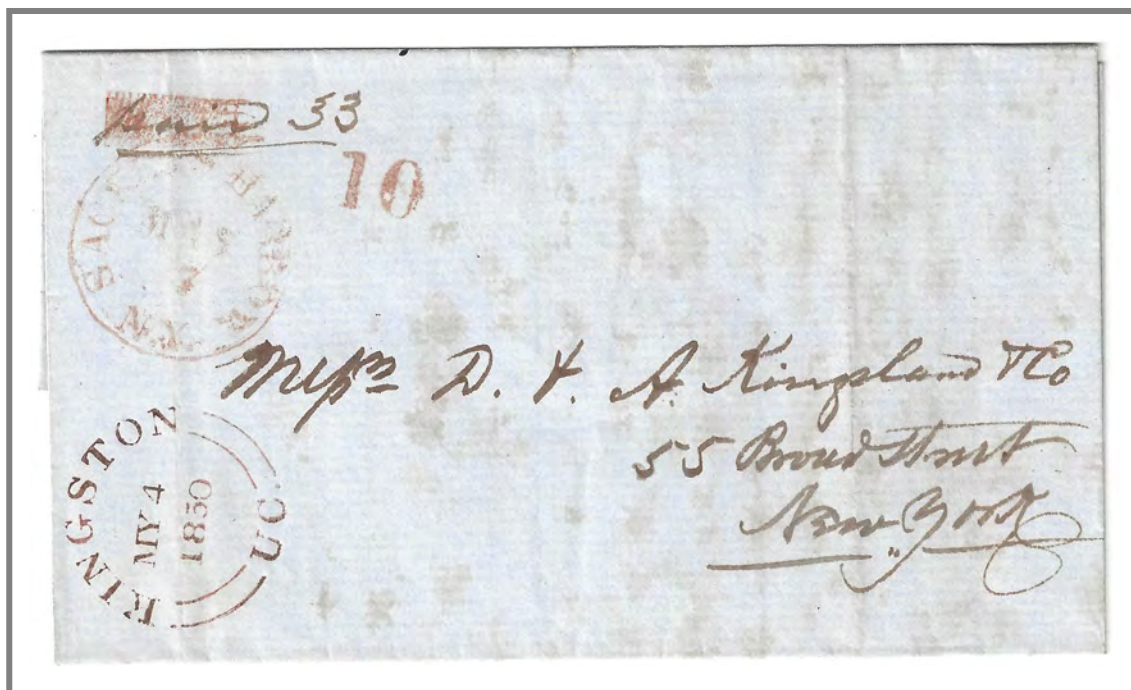 paid 33
10
SACKETS HARBOR N.Y.
MAY
7
Messrs D. & A. Kingsland & Co
55 Broad Street
New York
KINGSTON
U.C.
MY 4
1850